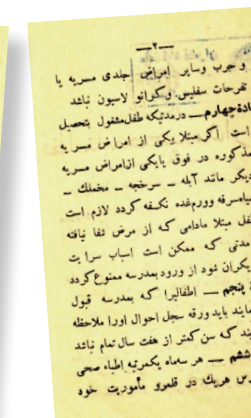 —۲—
و جرب وسایر امراض جلدی مسریه یا
تفرحات سفلیس وکرانو لاسیون نباشد
مادهٔ چهارم — درمدتیکه طفل مشغول بتحصیل
است اگر مبتلا یکی از امراض مسریه
مذکوره در فوق یایکی ازامراض مسریه
دیگر مانند آبله — سرخجه — مخملك —
سیاه‌سرفه وورم‌غده نکفه کردد لازم است
طفل مبتلا مادامی که از مرض شفا نیافته
مدتی که ممکن است اسباب سرایت
دیگران شود از ورود بمدرسه ممنوع کردد
پنجم — اطفالیرا که بمدرسه قبول
نمایند باید ورقه سجل احوال اورا ملاحظه
که سن کمتر از هفت سال تمام نباشد
ششم — هر سه‌ماه یکمرتبه اطباء صحی
هریك در قلمرو مأموریت خود